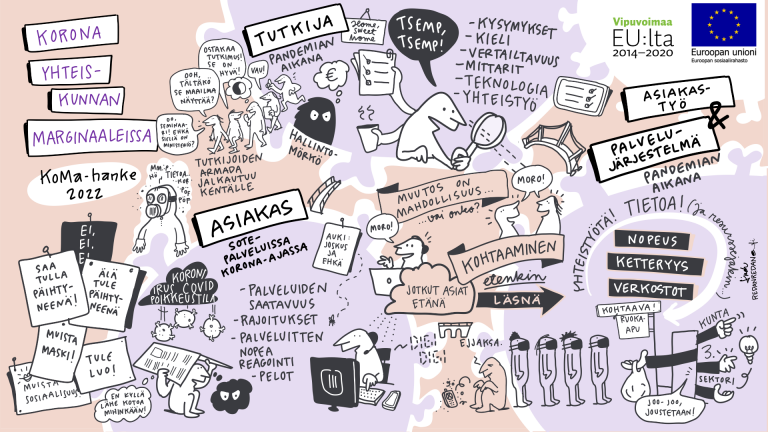 KORONA
YHTEIS-
KUNNAN
MARGINAALEISSA
KoMa-hanke
2022
TUTKIJA
PANDEMIAN
AIKANA
OSTAKAA
TUTKIMUS!
SE ON
HYVÄ!
VAU!
OOH,
TÄLTÄKÖ
SE MAAILMA
NÄYTTÄÄ?
TUTKIJOIDEN
ARMADA
JALKAUTUU
KENTÄLLE
Home,
sweet
home
€
HALLINTO-
MÖRKÖ
TSEMP,
TSEMP!
- KYSYMYKSET
- KIELI
- VERTAILTAVUUS
- MITTARIT
- TEKNOLOGIA
- YHTEISTYÖ
Vipuvoimaa
EU:lta
2014–2020
Euroopan unioni
Euroopan sosiaalirahasto
ASIAKAS-
TYÖ
&
PALVELU-
JÄRJESTELMÄ
PANDEMIAN
AIKANA
YHTEISTYÖTÄ! TIETOA!
NOPEUS
KETTERYYS
VERKOSTOT
REDANREDAN
KOHTAAVA
RUOKA-
APU
KUNTA
3.
SEKTORI
JOO-JOO,
JOUSTETAAN!
ASIAKAS
SOTE-
PALVELUISSA
KORONA-AJASSA
AUKI:
JOSKUS
JA
EHKÄ
- PALVELUIDEN
SAATAVUUS
- RAJOITUKSET
- PALVELUITTEN
NOPEA
REAGOINTI
- PELOT
MUUTOS ON
MAHDOLLISUUS...
...vai onko?
MORO!
MORO!
KOHTAAMINEN
JOTKUT ASIAT
ETÄNÄ
etenkin
LÄSNÄ
DIGI
DIGI
EI,
EI,
EI.
SAA
TULLA
PÄIHTY-
NEENÄ!
ÄLÄ
TULE
PÄIHTY-
NEENÄ
MUISTA
MASKI!
TULE
LUO!
MUISTA
SOSIAALISUUS
KORONA
VIRUS COVID
POIKKEUSTILA
EN KYLLÄ
LÄHE KOTOA
MIHINKÄÄN!